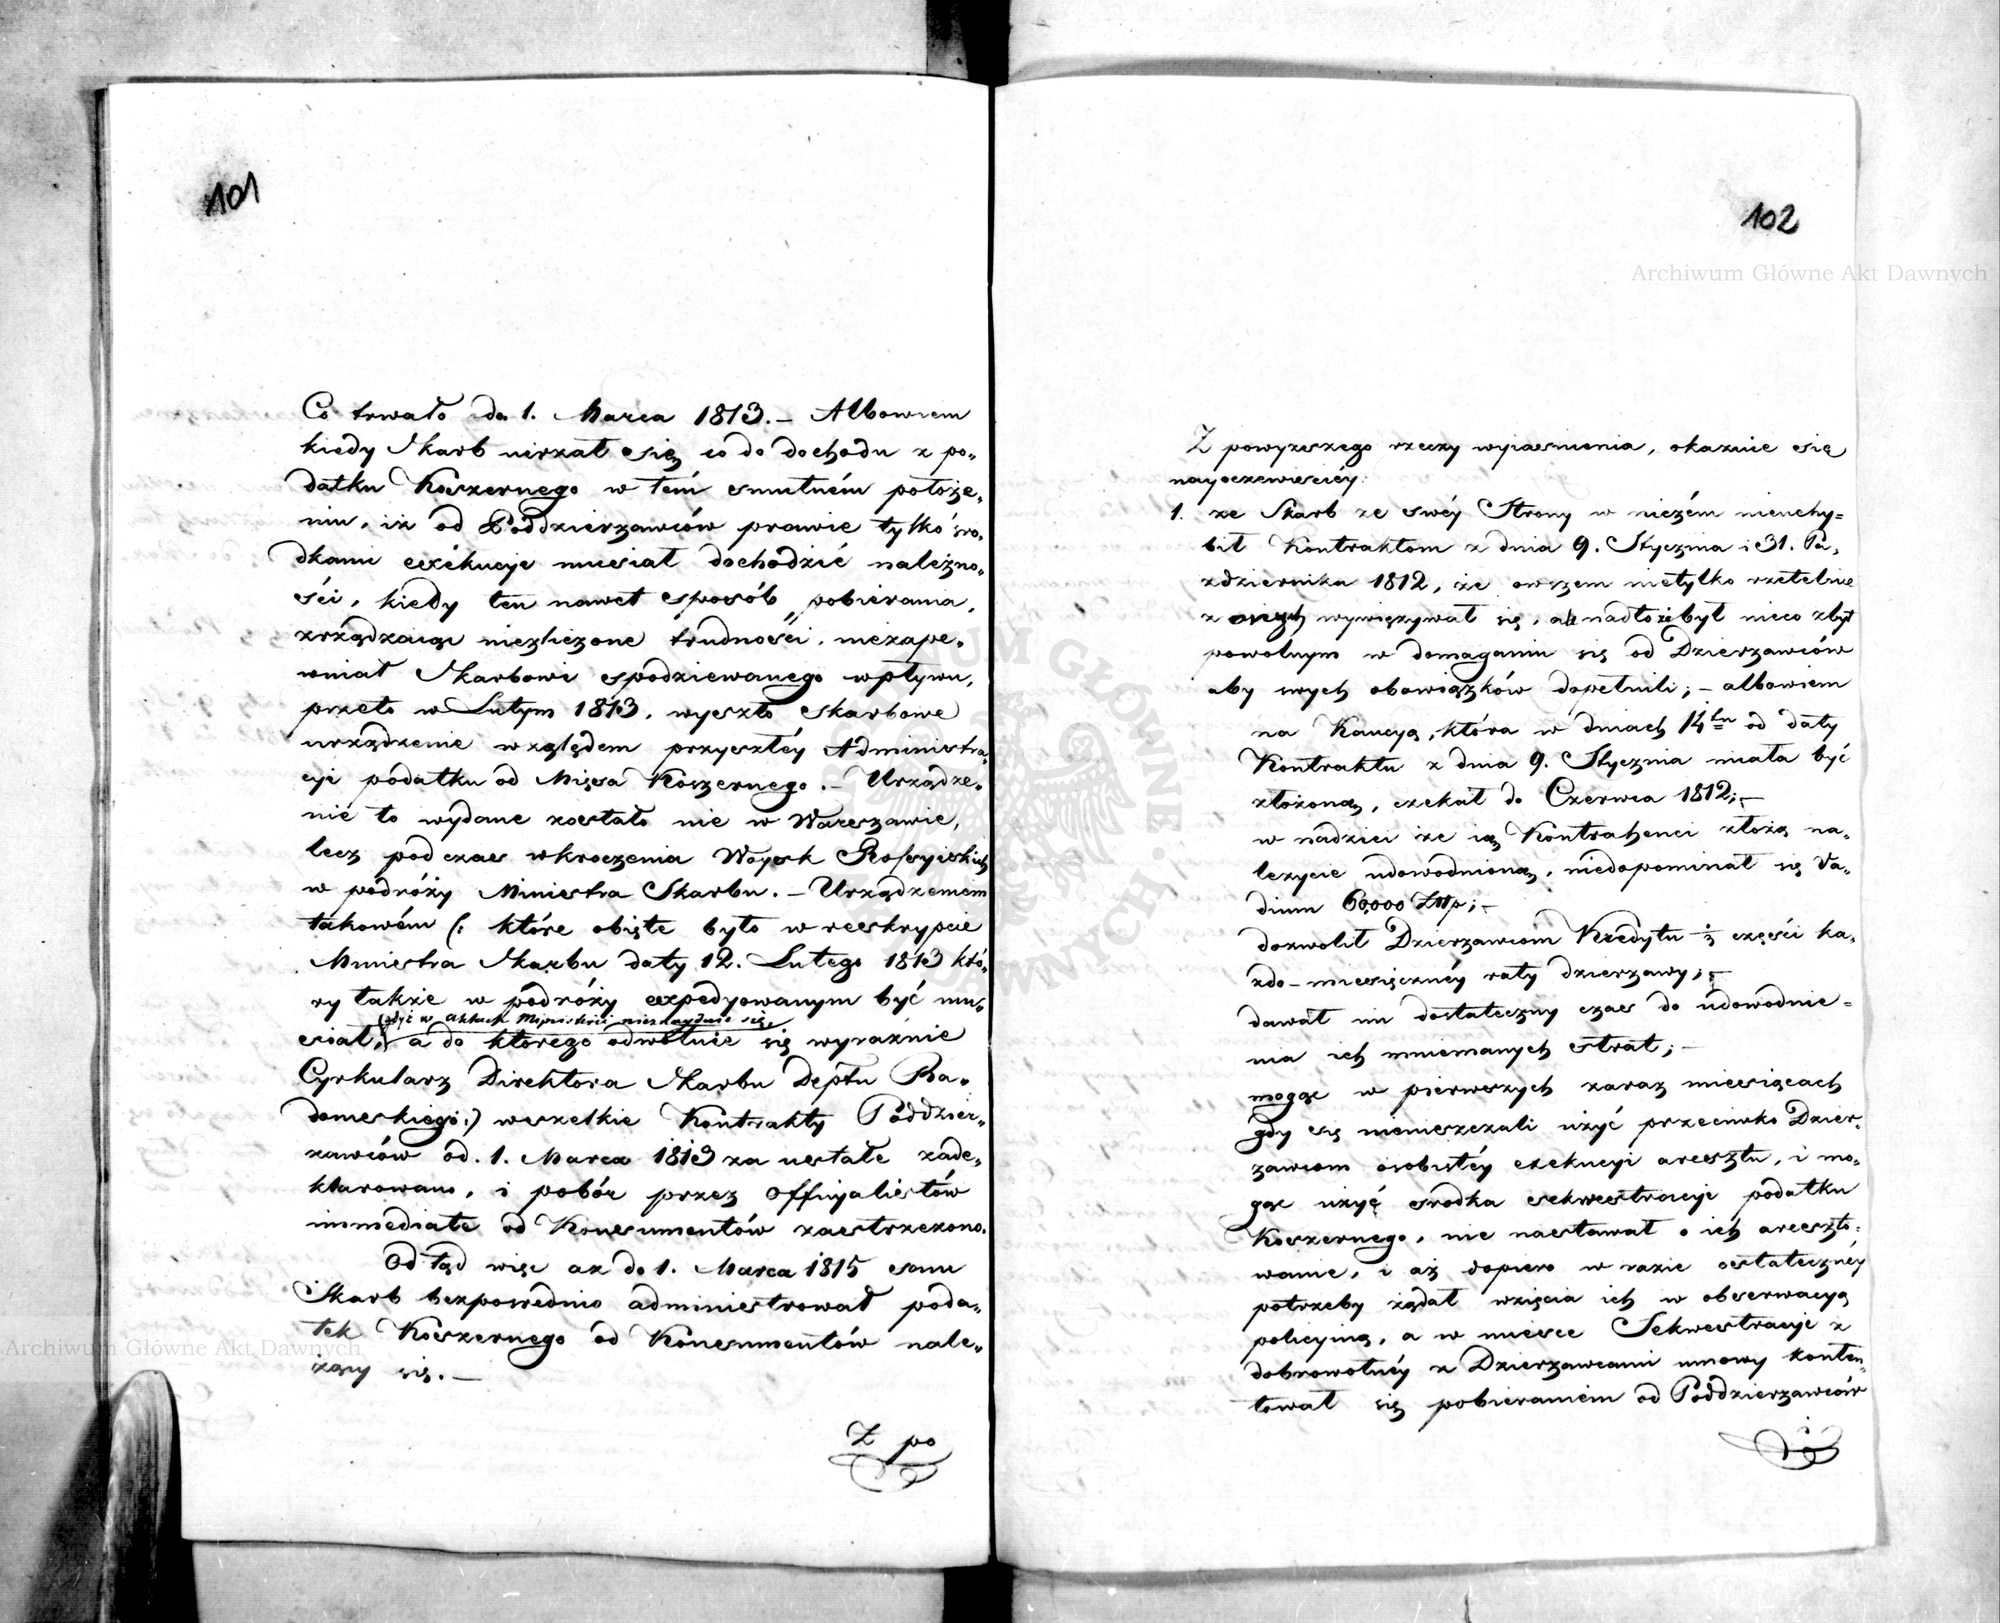 101
Co trwało do 1. Marca 1813. – Albowiem
kiedy Skarb uirzał się co do dochodu z po„
datku Koszernego w tém smutném położe„
niu, iż od Poddzierzawców prawie tylko śro„
dkami exekucyi musiał dochodzić należno„
ści, kiedy ten nawet sposób pobierania,
zrządzaiąc niezliczone trudności, niezape„
wniał Skarbowi spodziewanego wpływu,
przeto w Lutym 1813, wyszło skarbowe
urządzenie względem przyszłéy Administra„
cyi podatku od Mięsa Koszernego. – Urządze„
nie to wydane zostało nie w Warszawie,
lecz podczas wkroczenia Woysk Rossyiskich
w podróży Ministra Skarbu. – Urządzeniem
takowém (: które obięte było w reskrypcie
Ministra Skarbu daty 12. Lutego 1813 któ„
ry także w podróży expedyowanym być mu„
(gdyż w Aktach Ministerii nieznayduie się,
siał, a do którego odwołuie się wyraznie
Cyrkularz Direktora Skarbu Deptu Ra„
domskiégo:) wszelkie Kontrakty Poddzier„
zawców od. 1. Marca 1813 za ustałe zade„
klarowano, i pobór przez Officyalistów
immediate od Konsumentów zastrzeżono.
Od tąd więc aż do 1. Marca 1815 samu
Skarb bezposrednio administrował poda„
tek Koszernego od Konsumentów nale„
żący się. –
Z po
102
Archiwum Główne Akt Dawnych
Z powyższego rzeczy wyiasnienia, okazuie się
nayoczewiscićy:
1. że Skarb ze swéy Strony w niczém nieuchy=
bił Kontraktom z dnia 9. Stycznia i 31. Pa„
zdziernika 1812, że owszem nietylko rzetelnie
z onych wywięzywał się, ale nadto że był nieco zbyt
powolnym w domaganiu się od Dzierzawców
aby swych obowiązków dopełnili; – albowiem
na Kaucyą, która w dniach 14tu od daty
Kontraktu z dnia 9. Stycznia miała być
złożoną, czekał do Czerwca 1812; –
w nadziei że ią Kontrahenci złożą na„
leżycie udowodnioną, niedopominał się Va„
dium 60,000 Złłp; –
dozwolił Dzierzawcom Kredytu ⅓ części ka„
żdo-miesięcznéy raty dzierzawy; –
dawał im dostateczny czas do udowodnie=
nia ich mniemanych strat; –
mogąc w pierwszych zaraz miesiącach
gdy się nieuiszczali użyć przeciwko Dzier„
zawcom osobistéy exekucyi aresztu, i mo„
gąc użyć srodka sekwestracyi podatku
Koszernego, nie nastawał o ich areszto„
wanie, i aż dopiero w razie ostatecznéy
potrzeby żądał wzięcia ich w obserwacyą
policyiną, a w miesce Sekwestracyi z
dobrowolnéy z Dzierzawcami umowy konten„
tował się pobieraniém od Poddzierzawców
i
Archiwum Główne Akt Dawnych